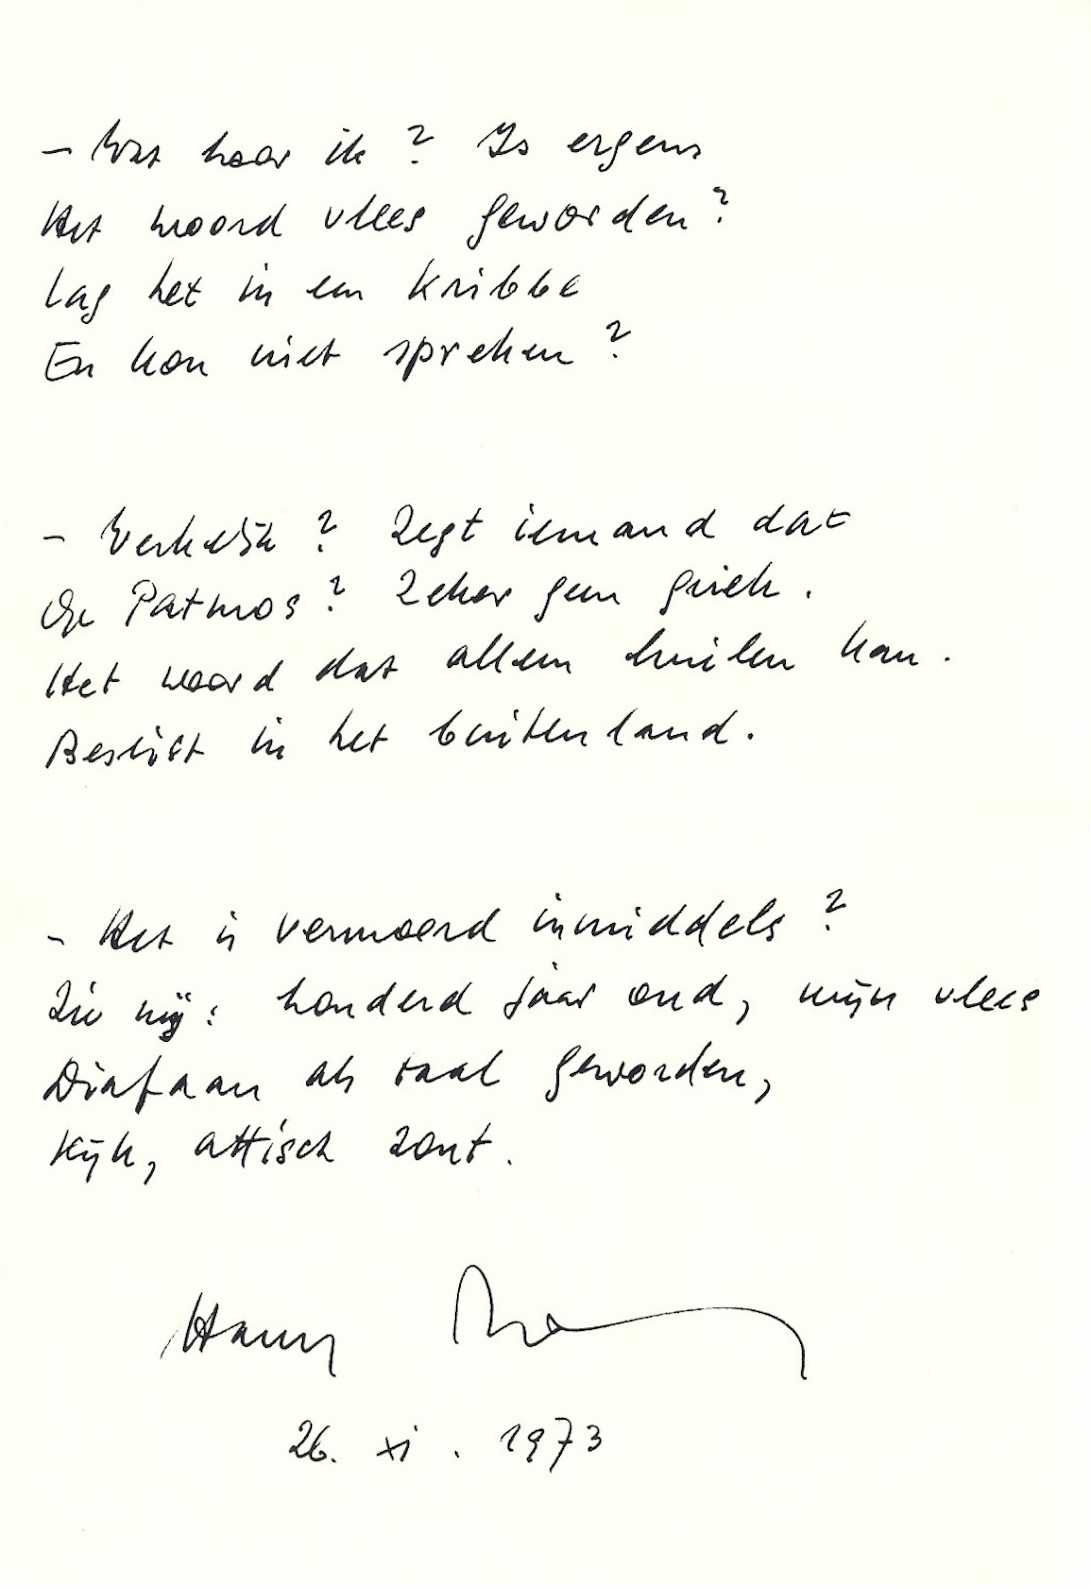 – Wat hoor ik? Is ergens
Het woord vlees geworden?
Lag het in een kribbe
En kon niet spreken?
– Werkelijk? Zegt iemand dat
Op Patmos? Zeker geen griek.
Het woord dat alleen huilen kan.
Beslist in het buitenland.
– Het is vermoord inmiddels?
Zie mij: honderd jaar oud, mijn vlees
Diafaan als taal geworden,
Kijk, attisch zout.
Harry
26. XI. 1973